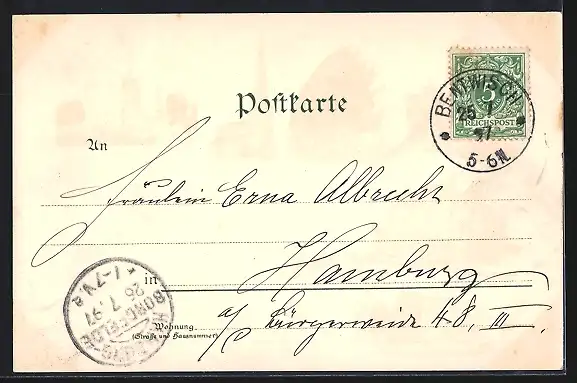 Postkarte
BENTWISCH
25 1
97
5-6N.
5
REICHSPOST
An
Fräulein Erna Albrecht
in Hamburg
Wohnung
(Straße und Hausnummer)
a/ Bürgerweide 48, III
HAMBURG
BORGFELDE
26 1.97
1-7 V.